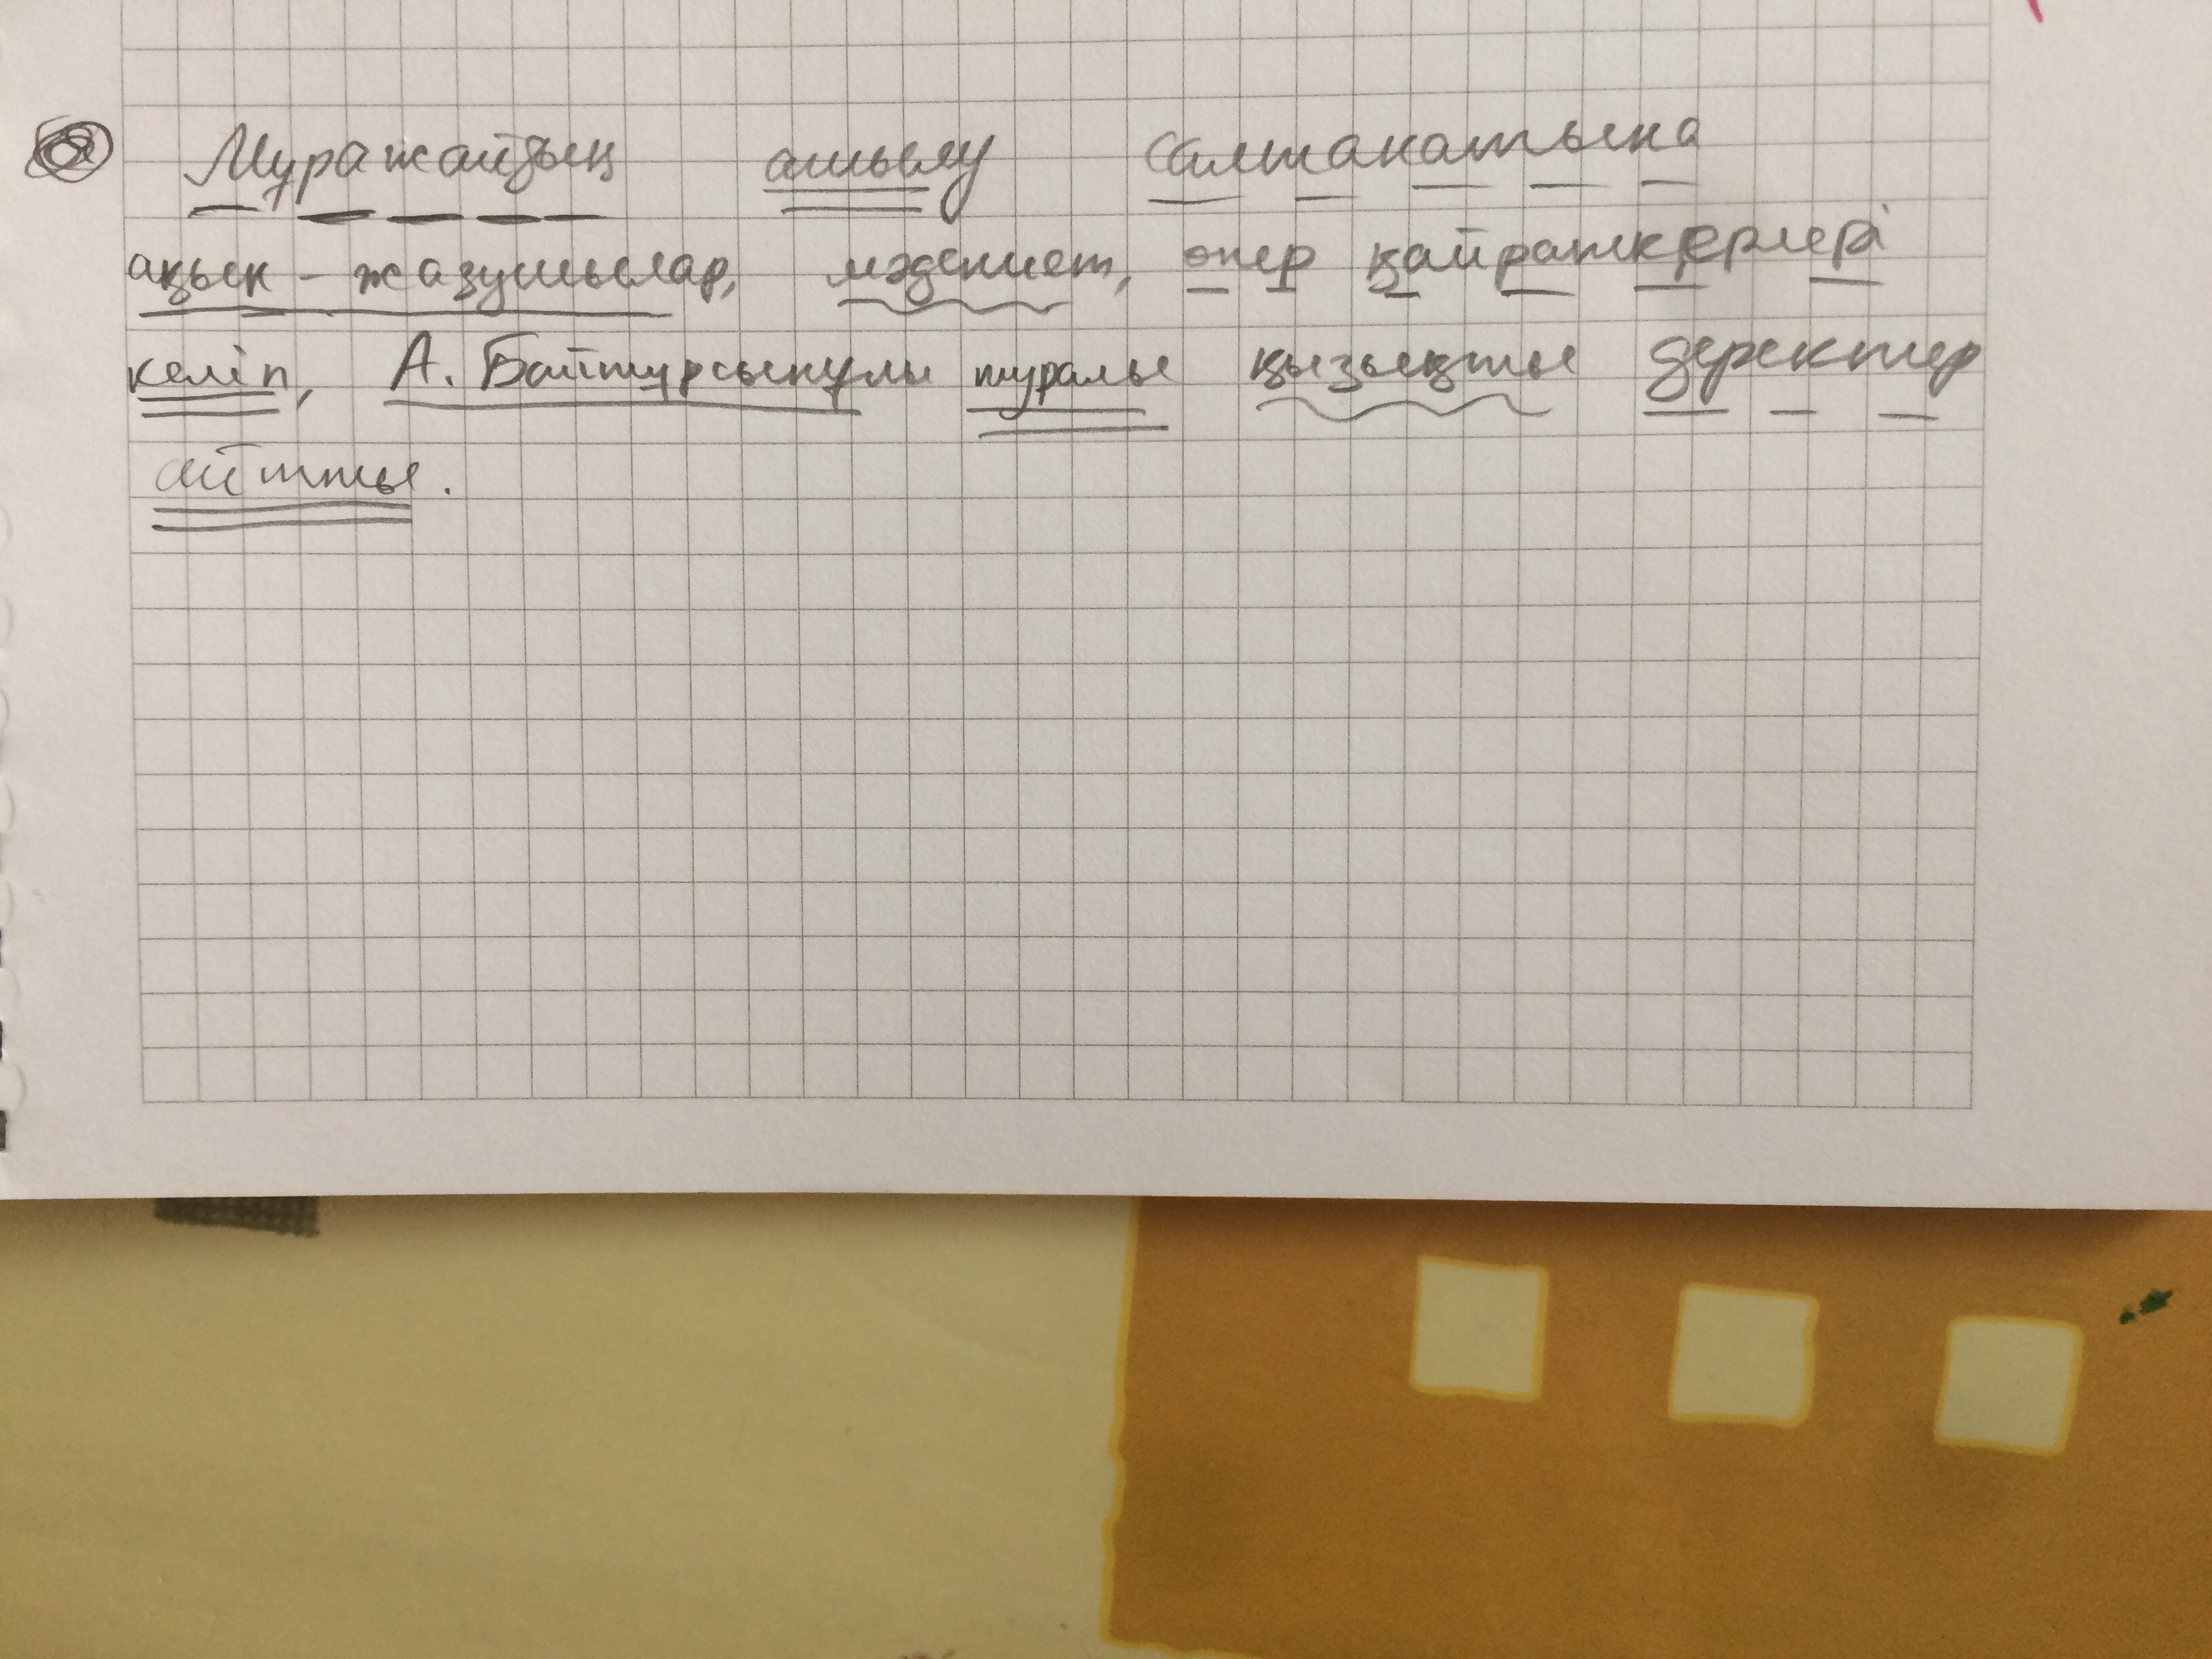 Муражайдың ашылу салтанатына
ақын - жазушылар, мәдениет, өнер қайраткерлері
келіп, А. Байтұрсынұлы туралы қызықты деректер
айтты.